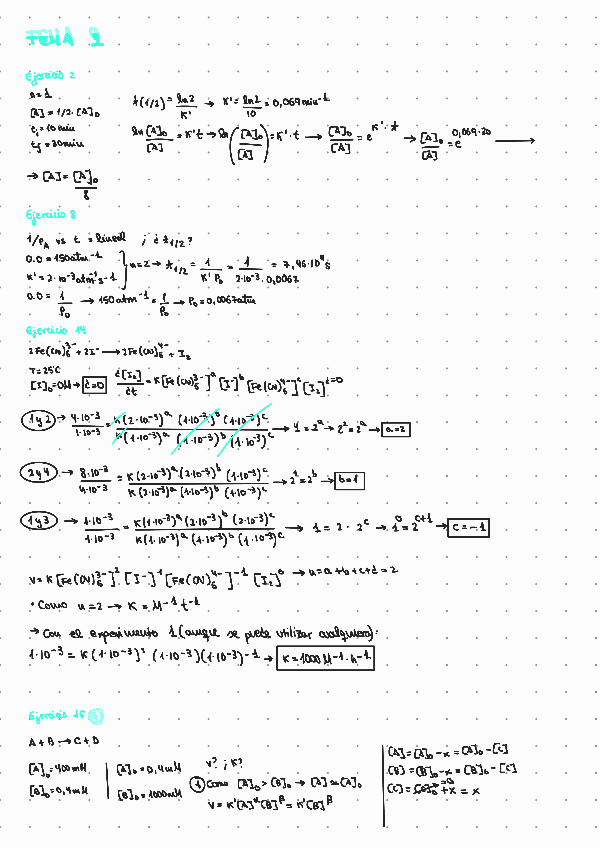 TEMA 2
Ejercicio 2
n = 1
[A] = 1/2 · [A]₀
t₁ = 10 min
t_f = 30 min
t(1/2) = ln2/K' → K' = ln2/10 = 0,069 min⁻¹
ln [A]₀/[A] = K't → ln([A]₀/[A]) = K'·t → [A]₀/[A] = e^(K'·t) → [A]₀/[A] = e^(0,069·30) →
→ [A] = [A]₀/8
Ejercicio 8
1/P_A vs t = lineal ; ¿ t₁/₂ ?
O.O = 150 atm⁻¹
K' = 2·10⁻³ atm⁻¹ s⁻¹
} n = 2 → t₁/₂ = 1/(K' P₀) = 1/(2·10⁻³ · 0,0067) = 7,46·10⁴ s
O.O = 1/P₀ → 150 atm⁻¹ = 1/P₀ → P₀ = 0,0067 atm
Ejercicio 14
2Fe(CN)₆³⁻ + 2I⁻ → 2Fe(CN)₆⁴⁻ + I₂
T = 25°C
[I]₀ = 0M → d = 0 d[I₂]/dt = K[Fe(CN)₆³⁻]ᵃ [I⁻]ᵇ [Fe(CN)₆⁴⁻]ᶜ [I₂]^(d=0)
1 y 2 → 4·10⁻³/1·10⁻³ = K(2·10⁻³)ᵃ (1·10⁻³)ᵇ (1·10⁻³)ᶜ / K(1·10⁻³)ᵃ (1·10⁻³)ᵇ (1·10⁻³)ᶜ → 4 = 2ᵃ → 2² = 2ᵃ → a = 2
2 y 4 → 8·10⁻³/4·10⁻³ = K(2·10⁻³)ᵃ (2·10⁻³)ᵇ (1·10⁻³)ᶜ / K(2·10⁻³)ᵃ (1·10⁻³)ᵇ (1·10⁻³)ᶜ → 2¹ = 2ᵇ → b = 1
1 y 3 → 1·10⁻³/1·10⁻³ = K(1·10⁻³)ᵃ (2·10⁻³)ᵇ (2·10⁻³)ᶜ / K(1·10⁻³)ᵃ (1·10⁻³)ᵇ (1·10⁻³)ᶜ → 1 = 2 · 2ᶜ → 1⁰ = 2ᶜ⁺¹ → c = -1
V = K[Fe(CN)₆³⁻]² [I⁻]¹ [Fe(CN)₆⁴⁻]⁻¹ [I₂]⁰ → n = a + b + c + d = 2
• Como n = 2 → K = M⁻¹ t⁻¹
→ Con el experimento 1 (aunque se puede utilizar cualquiera):
1·10⁻³ = K(1·10⁻³)² (1·10⁻³)(1·10⁻³)⁻¹ → K = 1000 M⁻¹·h⁻¹
Ejercicio 16
A + B → C + D
[A]₀ = 400 mM
[B]₀ = 0,4 mM
[A]₀ = 0,4 mM
[B]₀ = 1000 mM
V? ; K?
1 Como [A]₀ > [B]₀ → [A] ≈ [A]₀
V = K'[A]^α [B]^β = K'[B]^β
[A] = [A]₀ - x = [A]₀ - [C]
[B] = [B]₀ - x = [B]₀ - [C]
[C] = [C]₀ + x = x